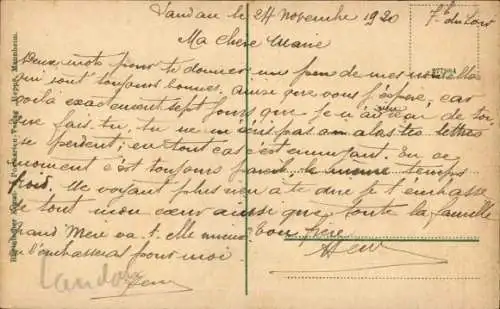 Landau le 24 novembre 1920
7 h du soir
Ma chère Marie
Deux mots pour te donner un peu de mes nouvelles
qui sont toujours bonnes. ainsi que vous j'espère, car
voilà exactement sept jours que je n'ai rien de toi
que fais tu, tu ne m'écris pas, ou alors tes lettres
se perdent; en tout cas c'est ennuyant. En ce
moment c'est toujours pareil le meme temps
froid. Ne voyant plus rien à te dire je t'embrasse
de tout mon coeur ainsi que toute la famille
Grand Mere va-t-elle mieux
ton frère
tu l'embrasseras pour moi
Landau